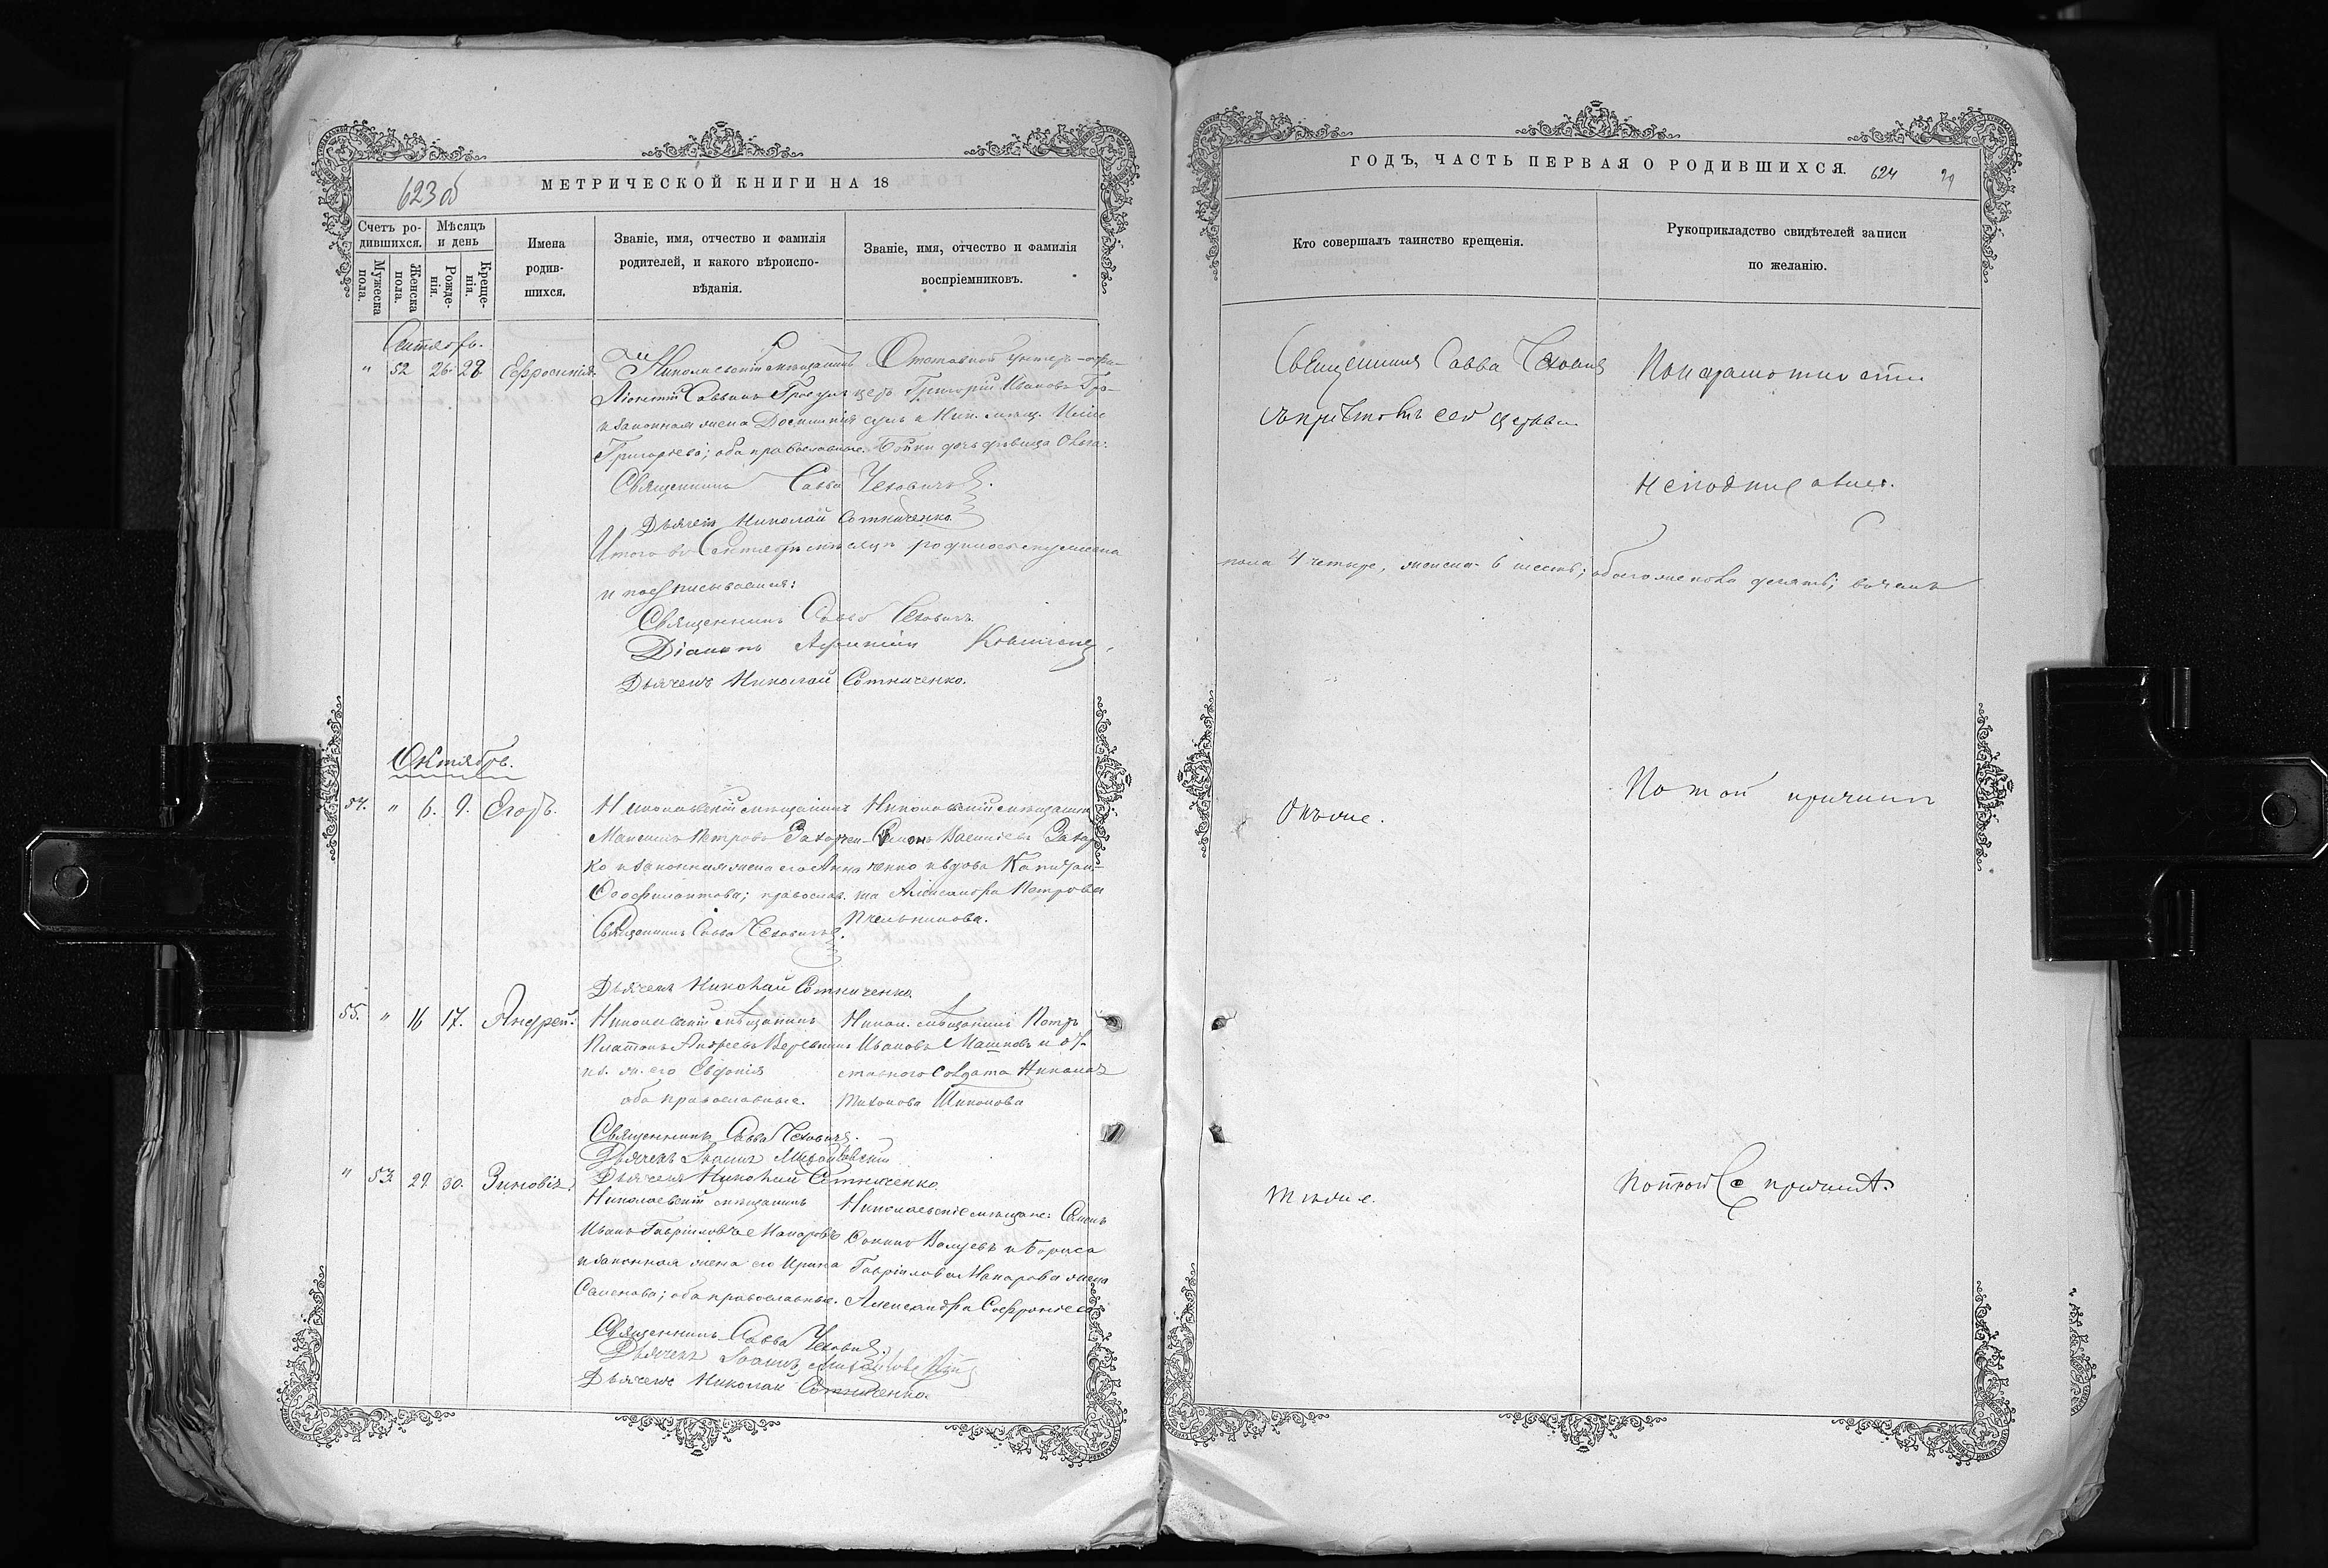 623об
МЕТРИЧЕСКОЙ КНИГИ НА 18
Счетъ ро-
дившихся.
Мѣсяцъ
и день
Мужеска
пола.
Женска
пола.
Рожде-
нія.
Креще-
нія.
Имена
родив-
шихся.
Званіе, имя, отчество и фамилія
родителей, и какого вѣроиспо-
вѣданія.
Званіе, имя, отчество и фамилія
воспріемниковъ.
Сентябрь.
" 52 26 28 Ефросинія.
Николаевскій мѣщанинъ
Саввинъ
и законная жена
Григорьева; оба православные.
Отставной унтеръ-офи-
церъ Григорій Ивановъ
и Ник. мѣщ.
дочь дѣвица
Священникъ Савва Чеховичъ.
Дьячекъ Николай Сотниченко
Итого въ Сентябрѣ мѣсяцѣ родилось мужеска
и подписываемся:
Священникъ Савва Чеховичъ.
Діаконъ
Дьячекъ Николай Сотниченко.
Октябрь.
54. " 6. 9. Егоръ.
Николаевскій мѣщанинъ
Максимъ Петровъ Захарчен-
ко и законная жена его Анна
Феофилактова; православ.
Николаевскій мѣщанинъ
Василіевъ Захар-
ченко и вдова Капитан-
ша Александра Петрова
Пчельникова.
Священникъ Савва Чеховичъ.
Дьячекъ Николай Сотниченко
55. " 16 17. Андрей.
Николаевскій мѣщанинъ
Платонъ Андреевъ Веревкинъ
и з. ж. его Евдокія
оба православные.
Никол. мѣщанинъ Петръ
Ивановъ Машковъ и от-
ставного солдата
Тихонова
Священникъ Савва Чеховичъ.
Дьячекъ Іоаннъ Михайловскій
Дьячекъ Николай Сотниченко
" 53. 29. 30. Зиновія.
Николаевскій мѣщанинъ
Иванъ Гавріиловъ Макаровъ
и законная жена его Ирина
Семенова; оба православные.
Николаевскіе мѣщане: Семенъ
и Бориса
Гавріилова Макарова жена
Александра Софроніева
Священникъ Савва Чеховичъ.
Дьячекъ Іоаннъ Михайловскій
Дьячекъ Николай Сотниченко.
ГОДЪ, ЧАСТЬ ПЕРВАЯ О РОДИВШИХСЯ.
624
29
Кто совершалъ таинство крещенія.
Рукоприкладство свидѣтелей записи
по желанію.
Священникъ Савва Чеховичъ
съ причтомъ сей церкви.
По неграмотности
неподписались.
пола 4 четыре, женска 6 шесть; обоего пола десять; въ чемъ
Онъ же.
По той причинѣ
Тѣ же.
По той же причинѣ.